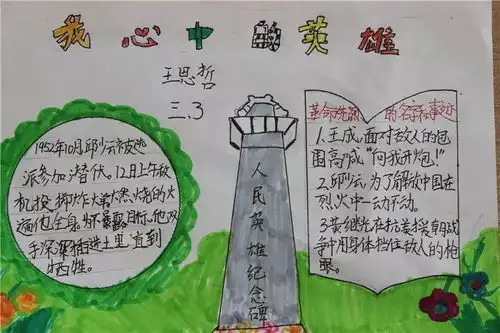 我心中的英雄
王思哲
三.3
1952年10月邱少云被选
派参加潜伏。12月上午敌
机投掷炸火弟燃烧的火
满他全身。怀暴露目标,他双
手深深插进土里直到
牺牲。
人民英雄纪念碑
革命先烈的名字和事迹
1.王成,面对敌人的包
围高喊"向我开炮!"
2.邱少云,为了解放中国在
烈火中一动不动。
3.黄继光在抗美援朝战
争中用身体挡住敌人的炮
眼。